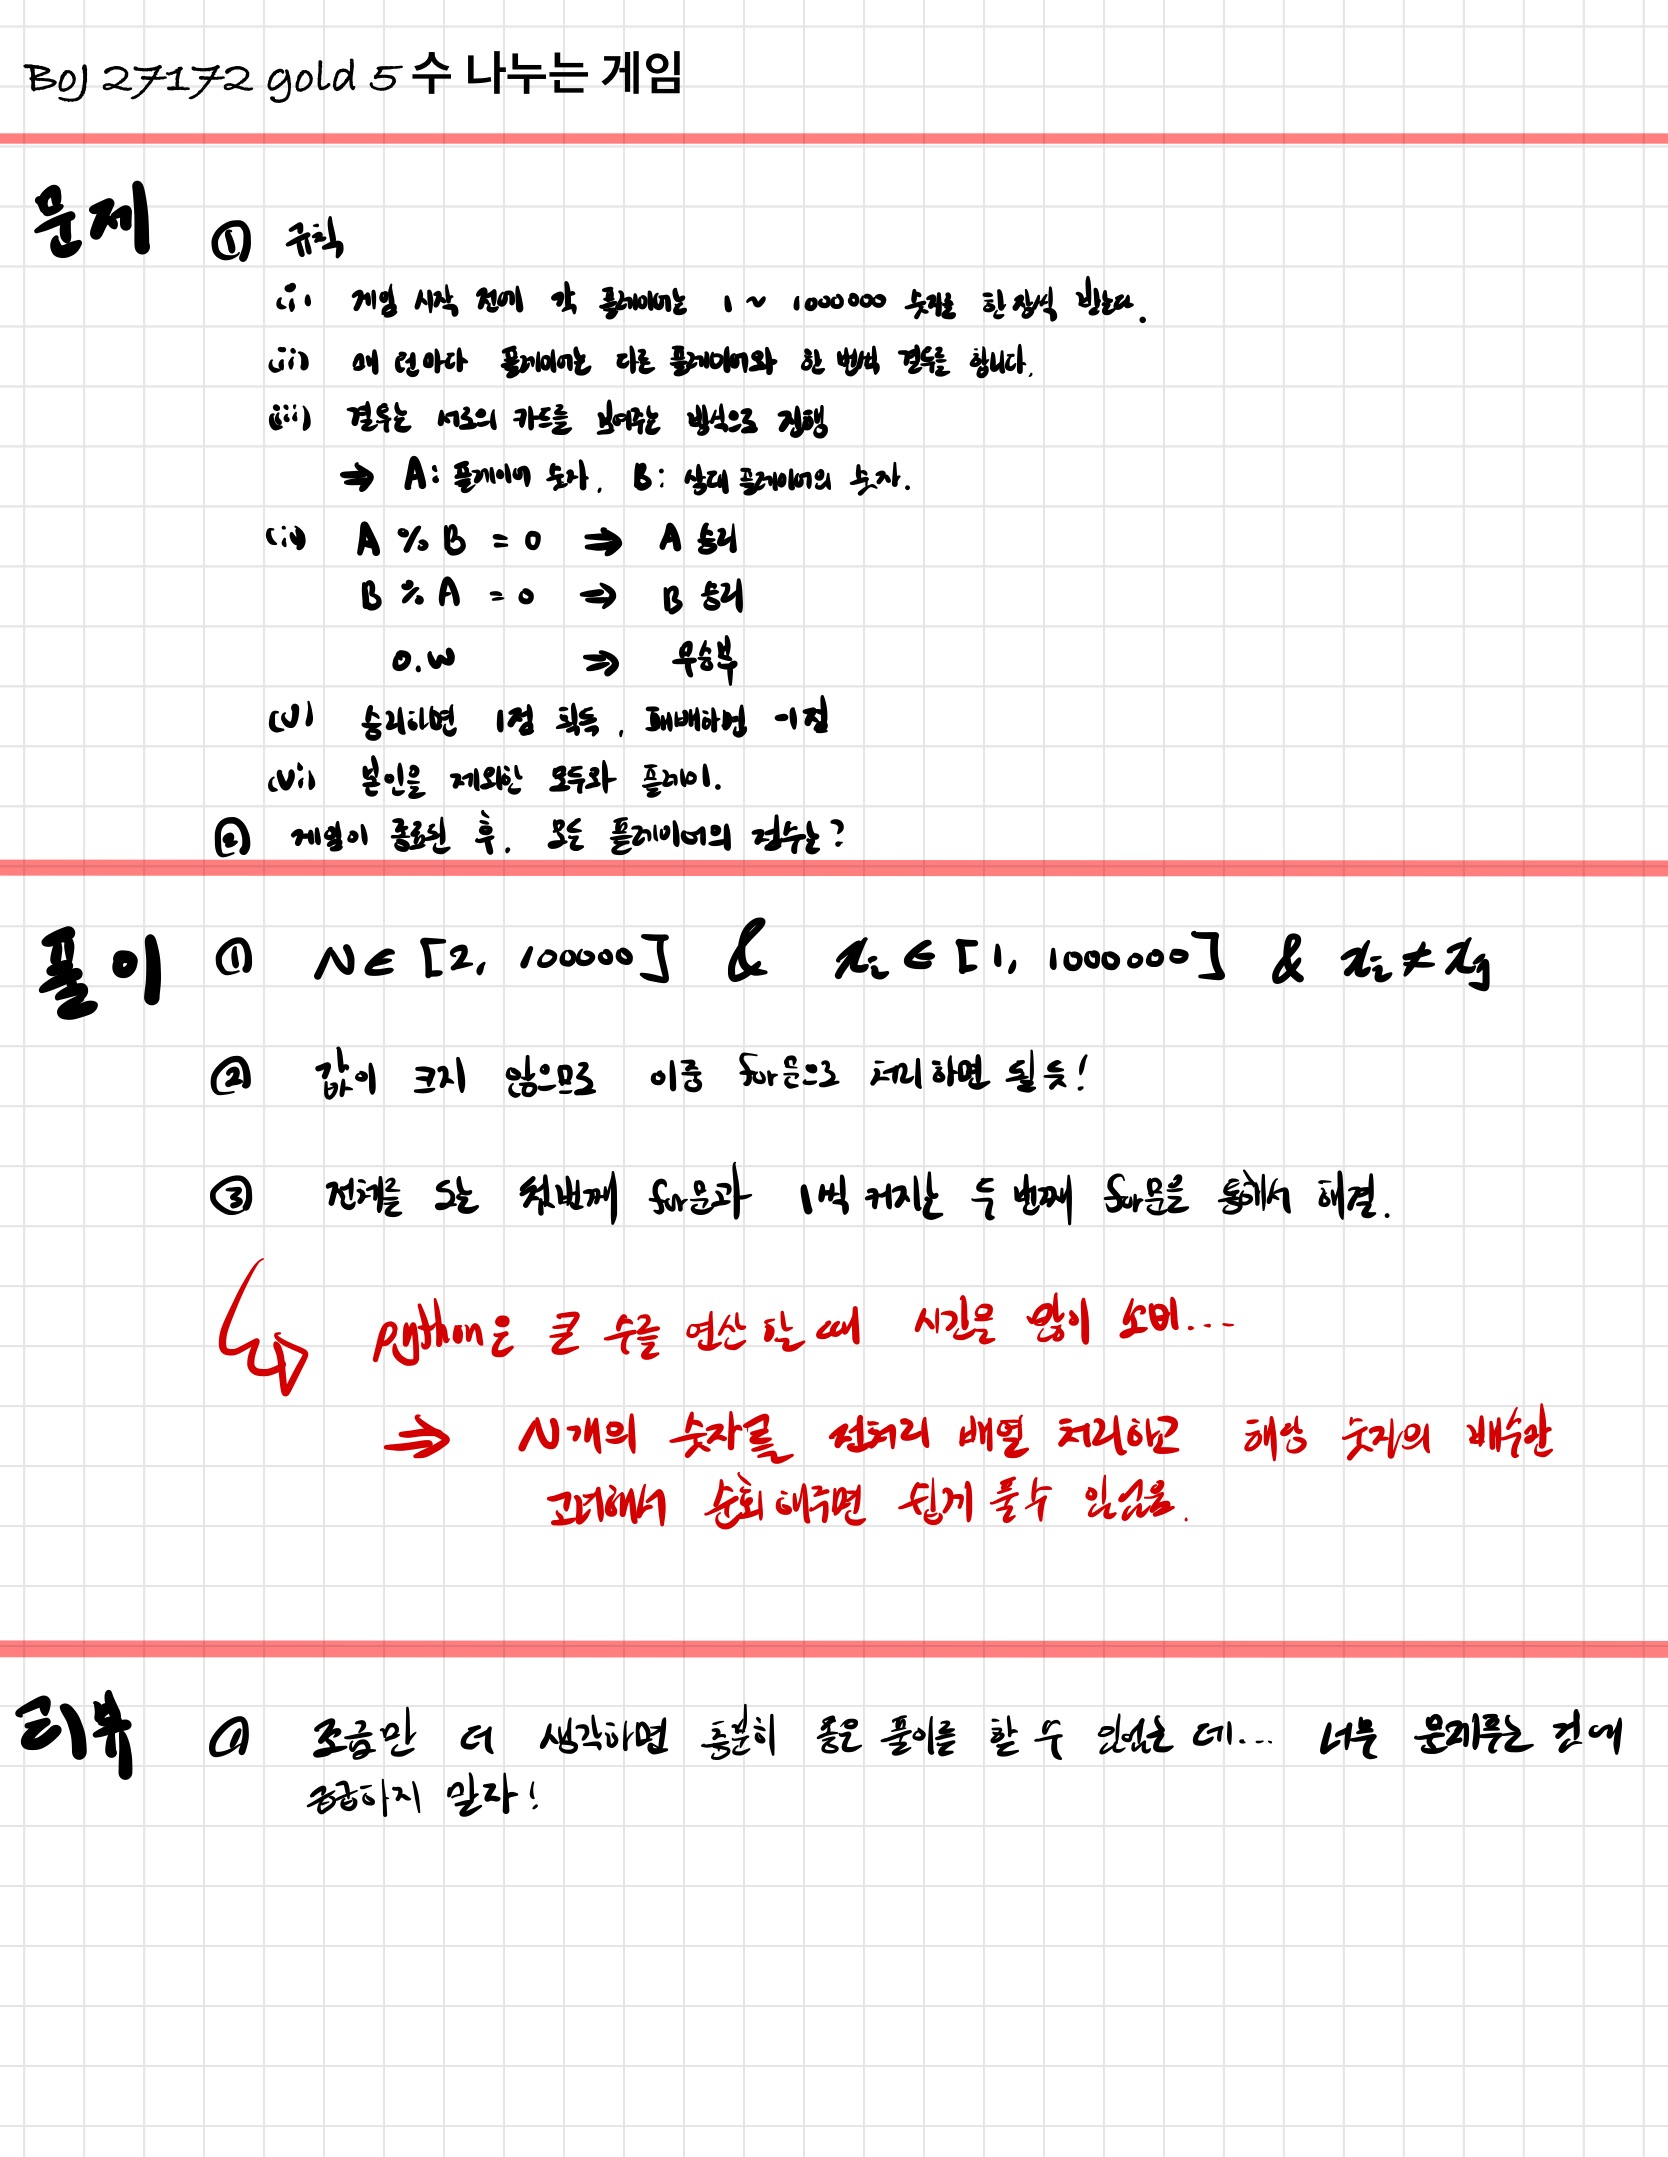 BOJ 27172 gold 5 수 나누는 게임
문제
① 규칙
(i) 게임 시작 전에 각 플레이어는 1 ~ 1000000 숫자를 한 장씩 받는다.
(ii) 매 턴마다 플레이어는 다른 플레이어와 한 번씩 결투를 합니다.
(iii) 결투는 서로의 카드를 보여주는 방식으로 진행
⇒ A: 플레이어 숫자, B: 상대 플레이어의 숫자.
(iv) A % B = 0 ⇒ A 승리
B % A = 0 ⇒ B 승리
O.W ⇒ 무승부
(V) 승리하면 1점 획득, 패배하면 -1점
(Vi) 본인을 제외한 모두와 플레이.
② 게임이 종료된 후, 모든 플레이어의 점수는?
풀이
① N ∈ [2, 100000] & xi ∈ [1, 1000000] & xi ≠ xj
② 값이 크지 않으므로 이중 for문으로 처리하면 될 듯!
③ 전체를 도는 첫번째 for문과 1씩 커지는 두 번째 for문을 통해서 해결.
python은 큰 수를 연산 할 때 시간을 많이 소비...
⇒ N개의 숫자를 전처리 배열 처리하고 해당 숫자의 배수만
고려해서 순회 해주면 쉽게 풀 수 있었음.
리뷰
① 조금만 더 생각하면 충분히 좋은 풀이를 할 수 있었는 데... 너무 문제푸는 것에
급급하지 말자!